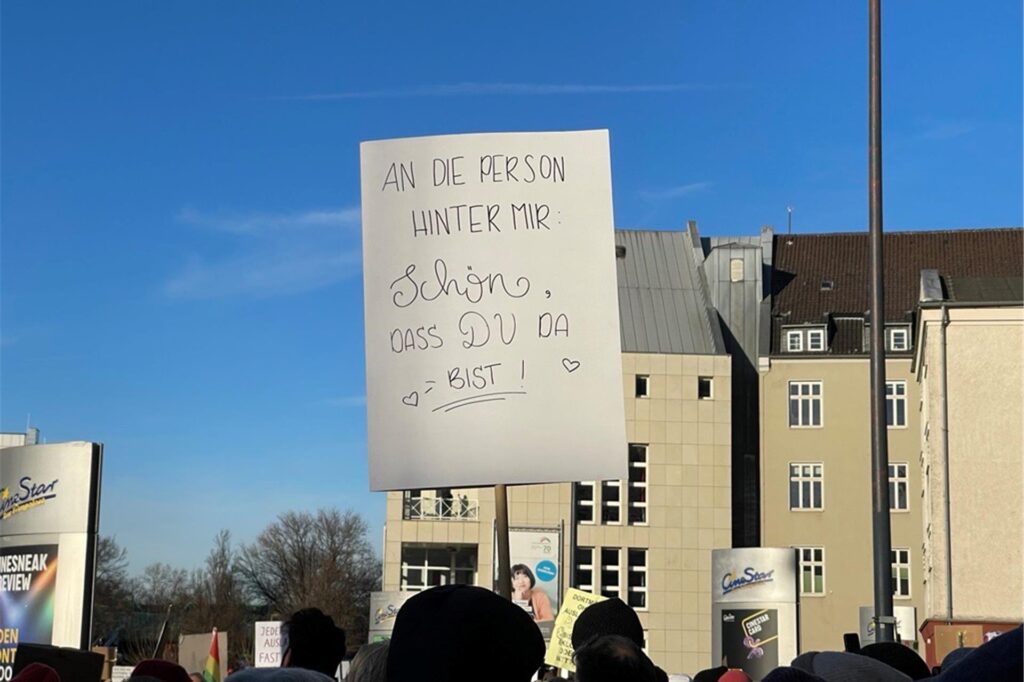 AN DIE PERSON
HINTER MIR:
Schön,
DASS DU DA
BIST!
CineStar
CineStar
CINESTAR
CARD
JEDE
AUS
FAST
DORTM
20